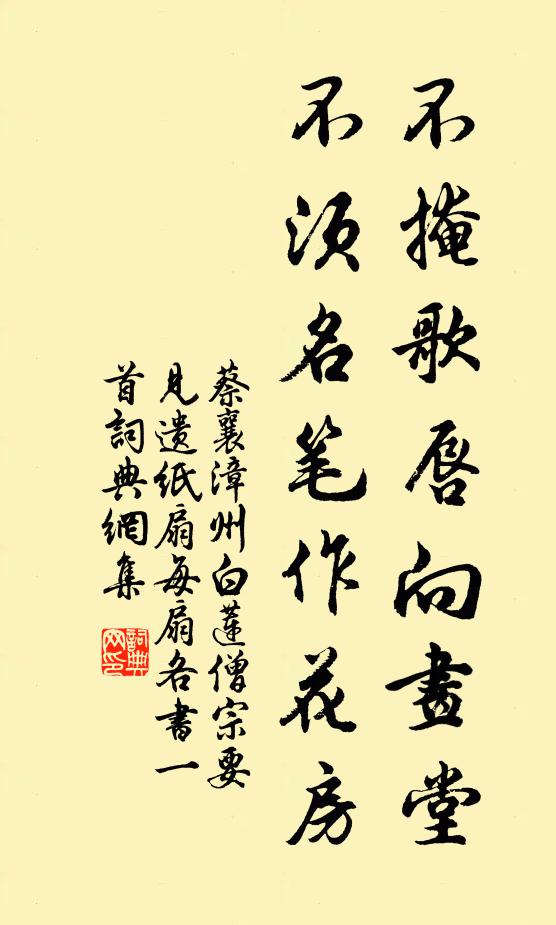 不掩歌唇向畫堂
不须名笔作花房
蔡襄漳州白蓮僧宗要
見遗纸扇每扇各書一
首詞典網集
詞典网印